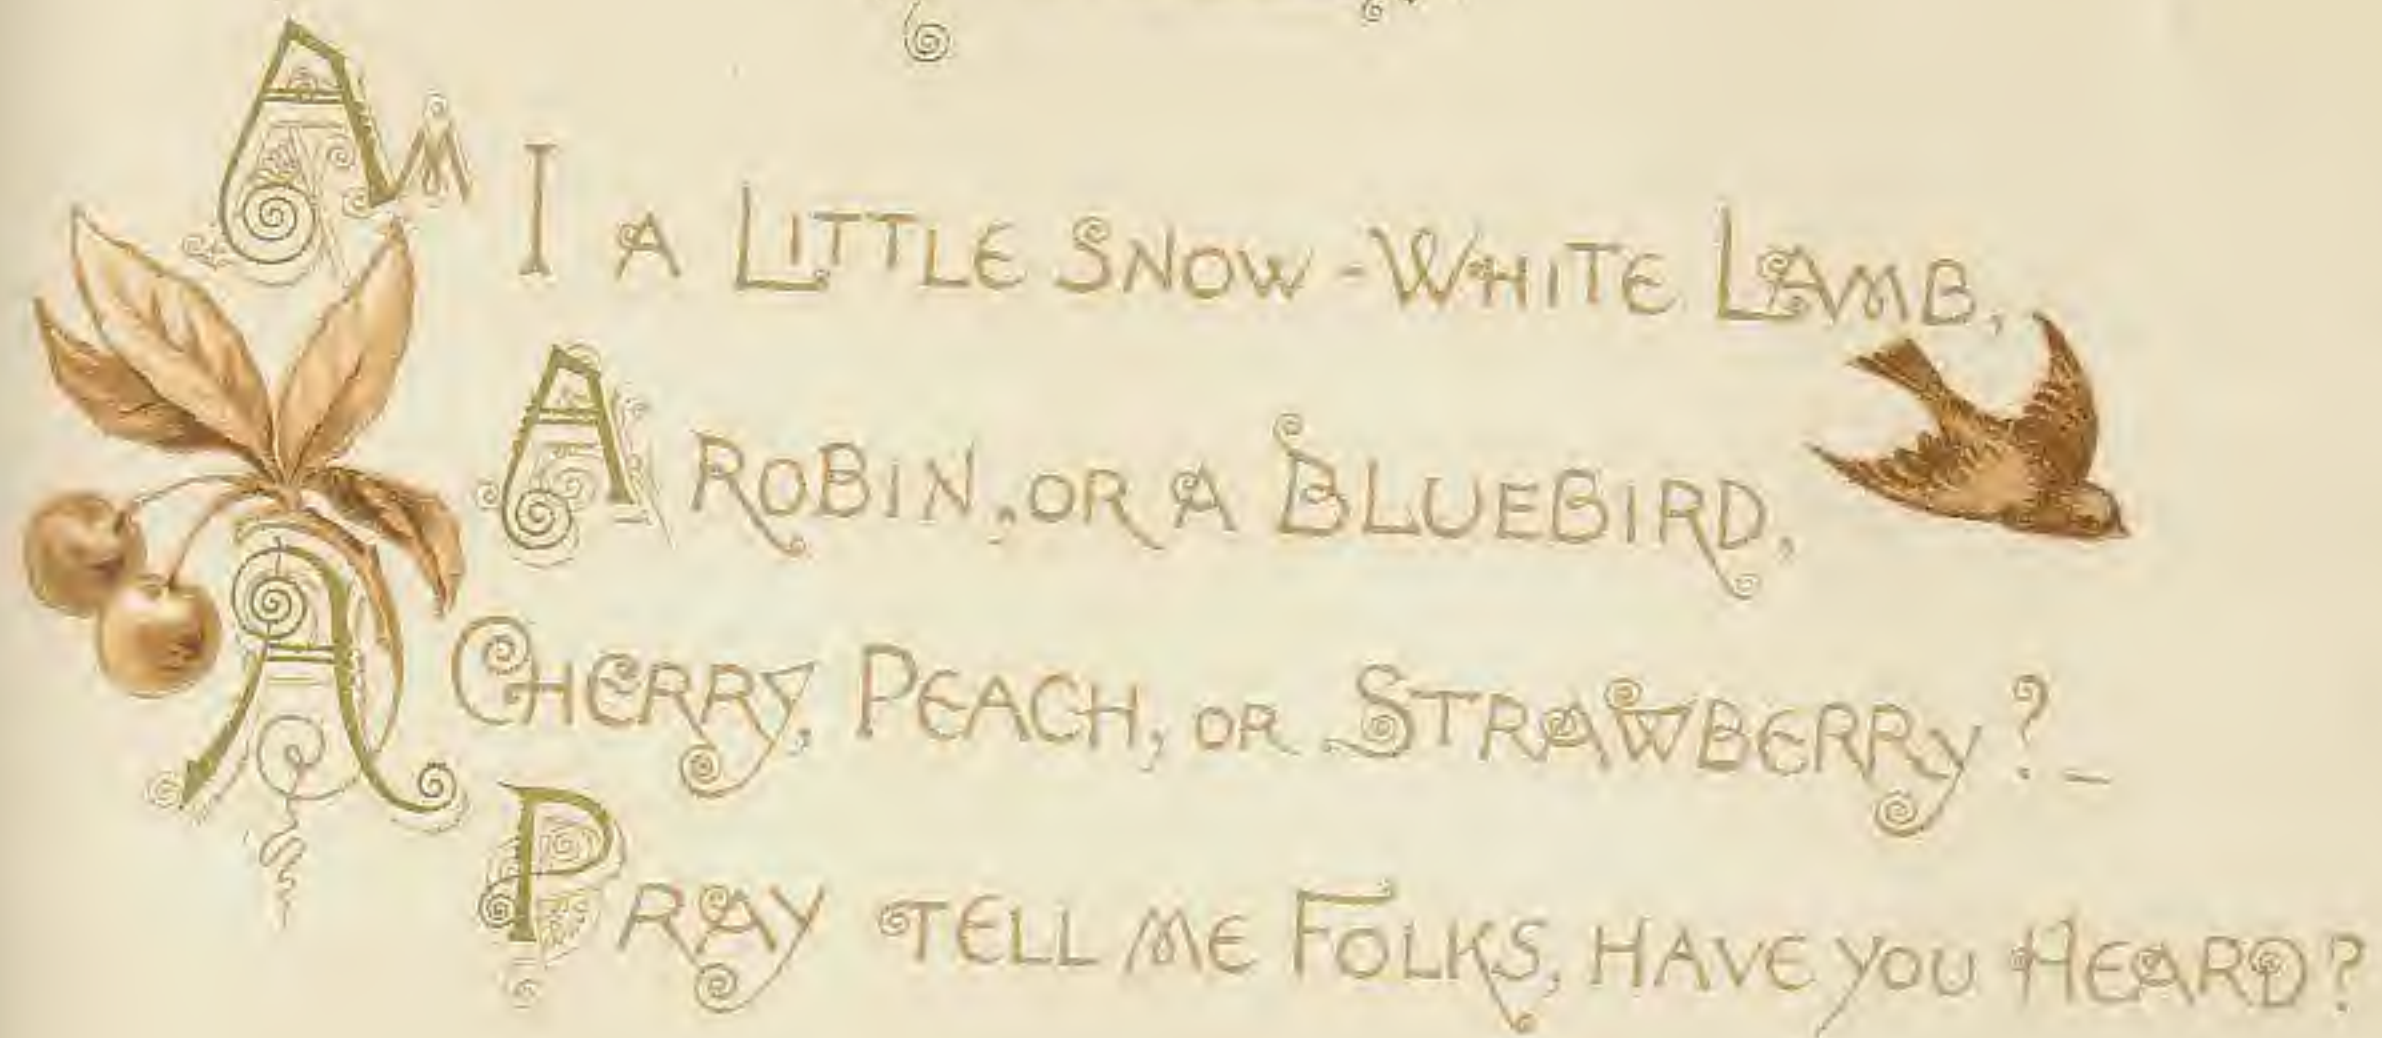 Am I a Little Snow-White Lamb,
A Robin, or a Bluebird,
A Cherry, Peach, or Strawberry? –
Pray tell me Folks, have you Heard?